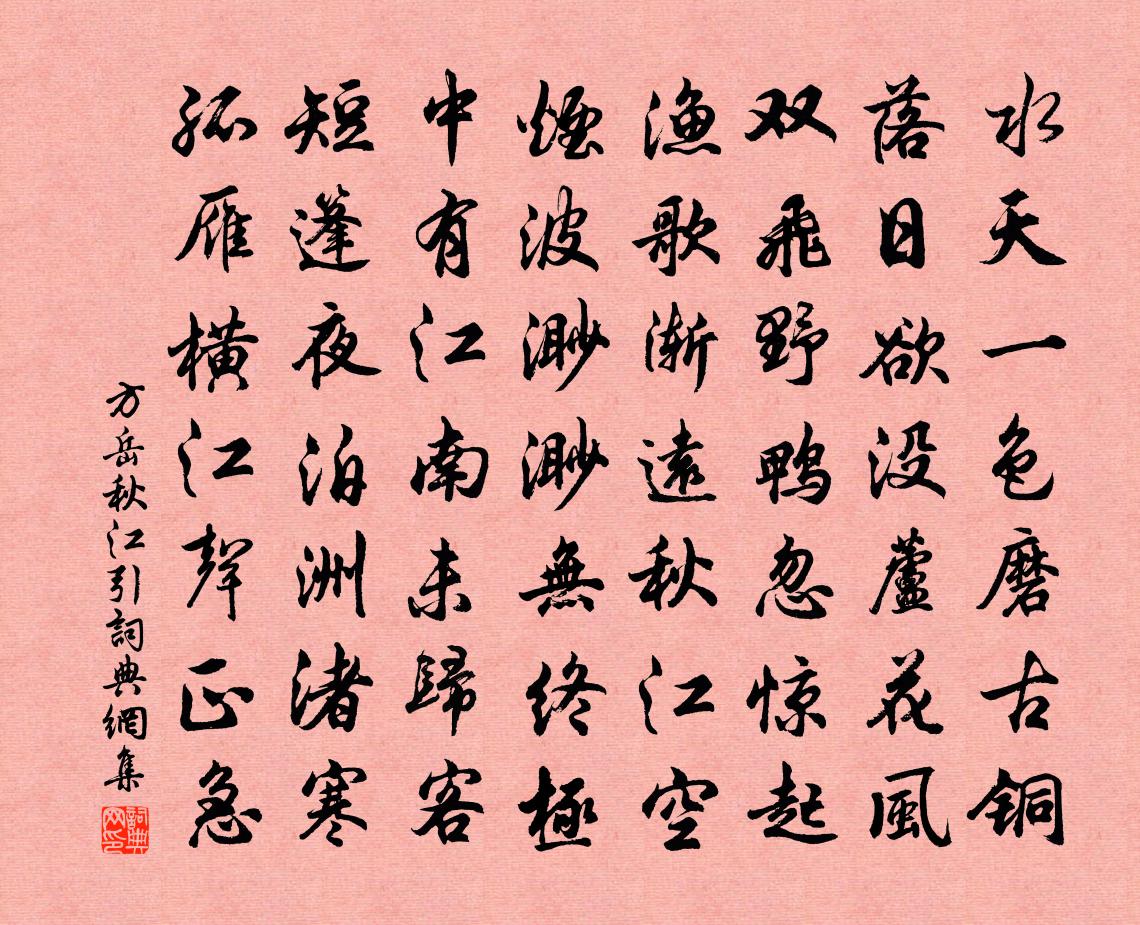 水天一色磨古铜
落日欲没蘆花風
双飛野鸭忽惊起
漁歌渐遠秋江空
煙波渺渺無终極
中有江南未歸客
短蓬夜泊洲渚寒
孤雁横江聲正急
方岳秋江引詞典網集
詞典网印